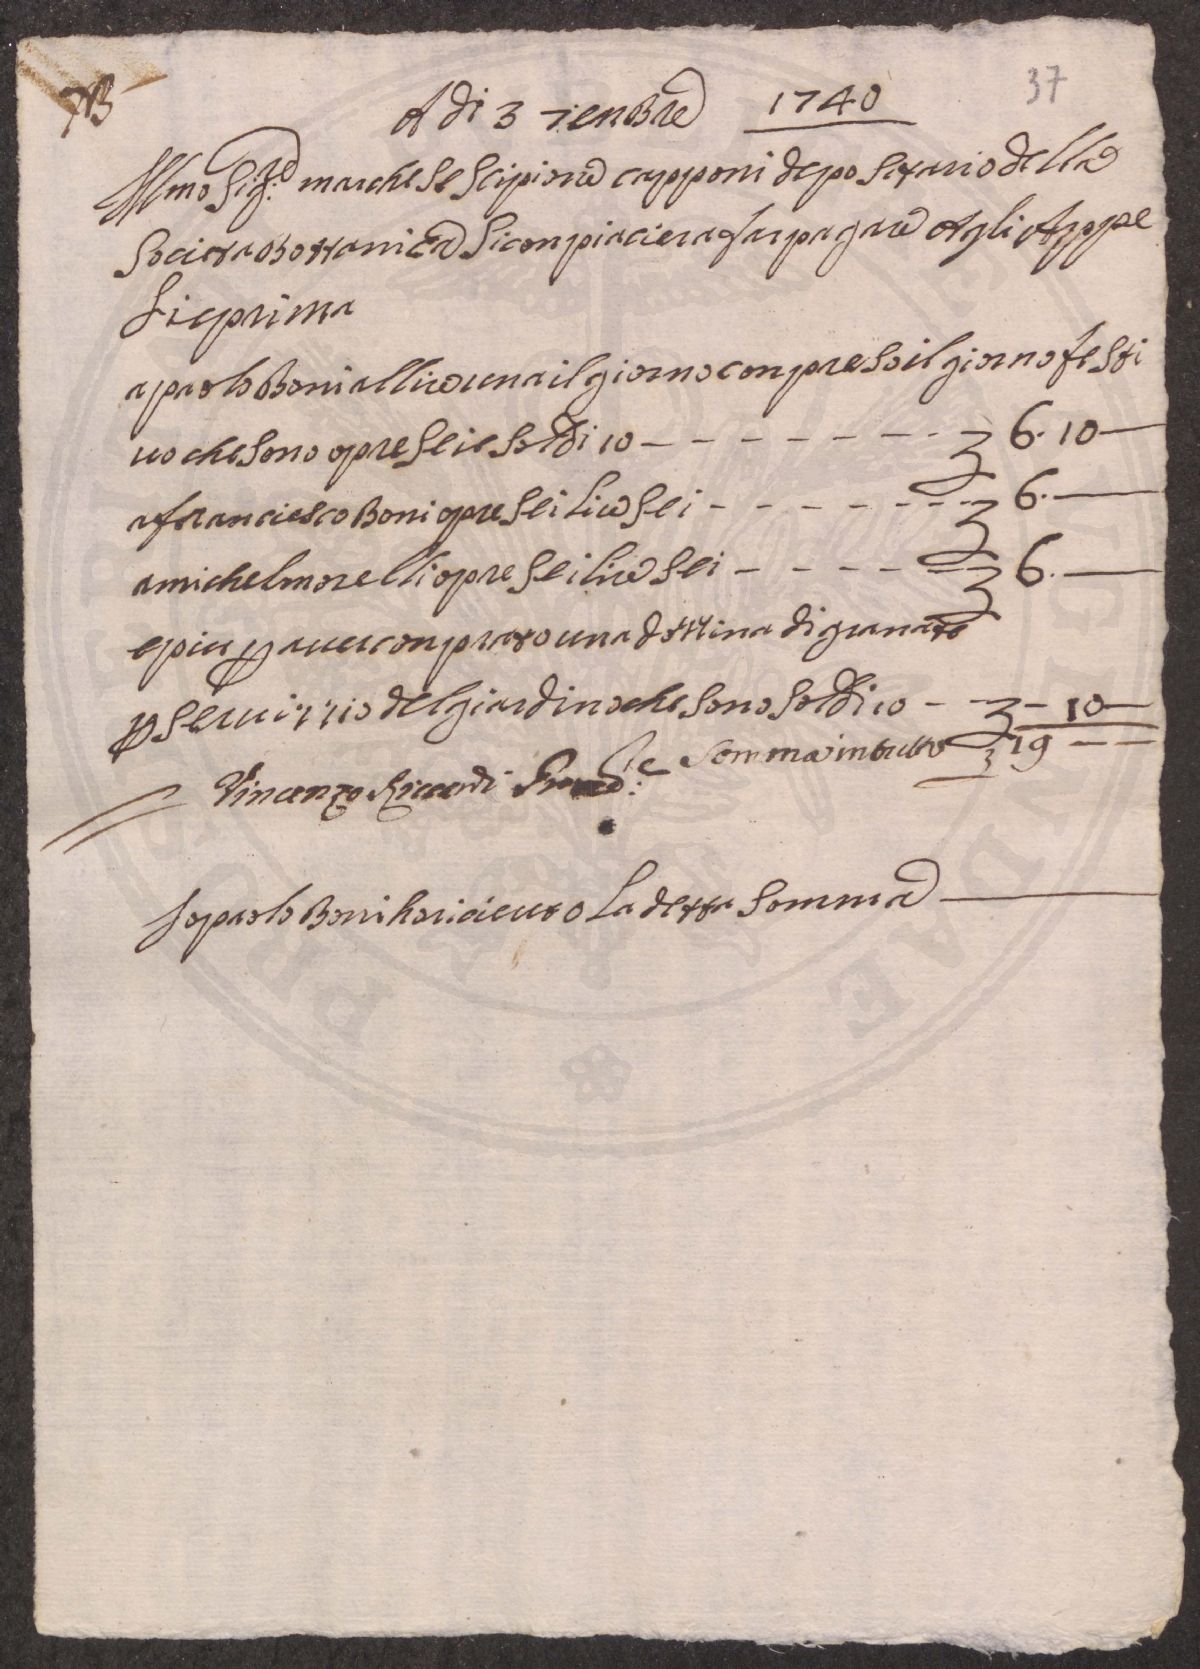 73
37
A di 3 7enbre 1740
Illmo Sig:re marchese Scipione capponi depositario della
Societa Bottanica Si conpiaciera far pagare Agli Appe
Sieprima
a paolo Boni a llire una il giorno conpreso il giorno festi
uo che sono opre Sei e Soldi 10 - - - - - - - - 6. 10 —
a franciesco Boni opre Sei Lire Sei - - - - - - - 6. —
a michel morelli opre Sei lire Sei - - - - - - 6. —
e piu p auer conprato una dozzina di granate
p Seruizzio del giardino che sono Soldi 10 - - - 10 —
Somma in tutto 19 - -
Vincenzo Riccardi Presid:te
Io paolo Boni ho riceuto La detta Somma —